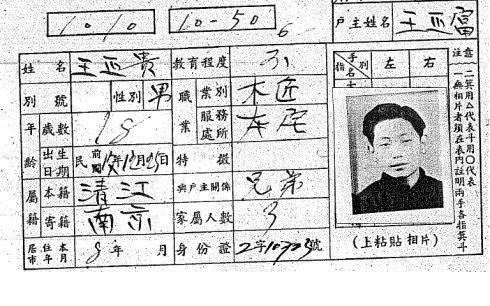 1.10 10-50 6
戶主姓名 王亚富
姓名 王亚贵 教育程度
別號 性別 男 職業 業別 木匠
年齡 歲數 18 服務處所 在宅
出生日期 民前國 年12月25日 特徵
屬籍 本籍 清江 與戶主關係 兄弟
寄籍 南京 家屬人數 3
居住本市年月 8年 月 身份證 號
指名 手別 左 右
(上粘貼相片)
注意
一無相片者須在表內註明兩手各指箕斗
二箕用△代表斗用〇代表